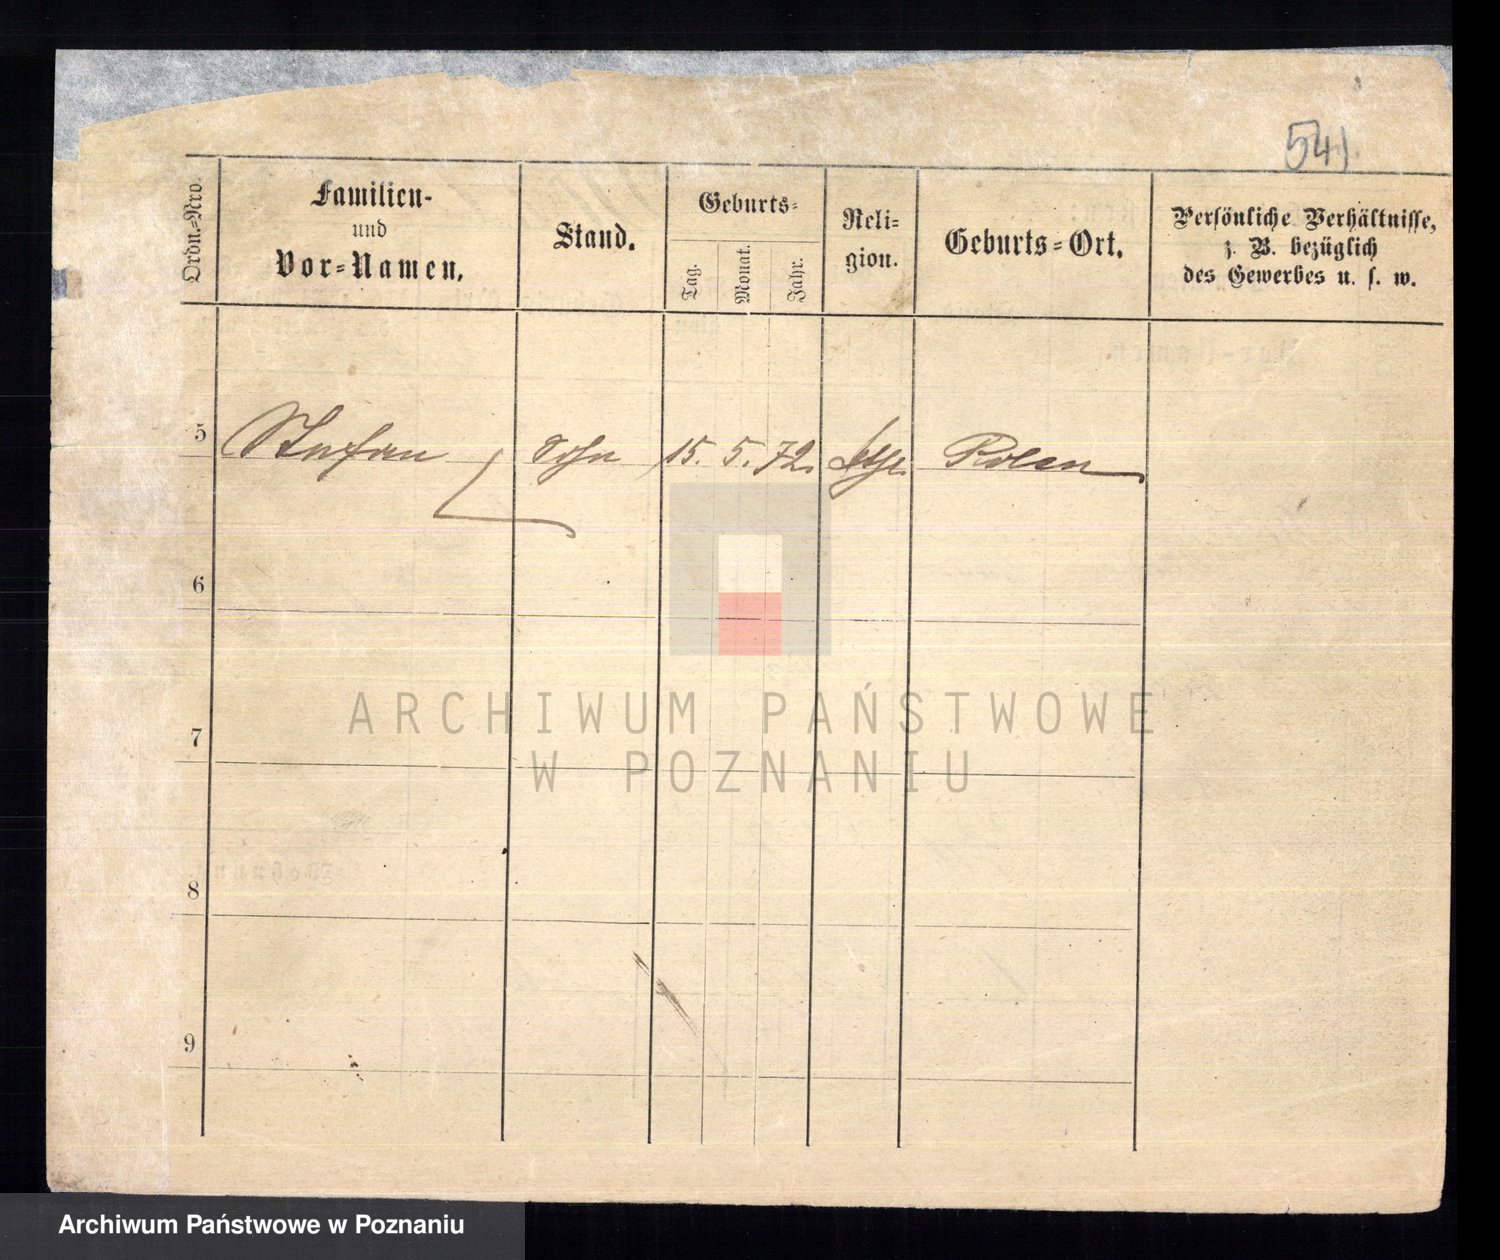 54)
Ordn.-Nro.
Familien-
und
Vor-Namen.
Stand.
Geburts-
Tag.
Monat.
Jahr.
Reli-
gion.
Geburts-Ort.
Persönliche Verhältnisse,
z. B. bezüglich
des Gewerbes u. s. w.
5 Stefan Sohn 15. 5. 72. Posen
6
7
8
9
ARCHIWUM PAŃSTWOWE
W POZNANIU
Archiwum Państwowe w Poznaniu